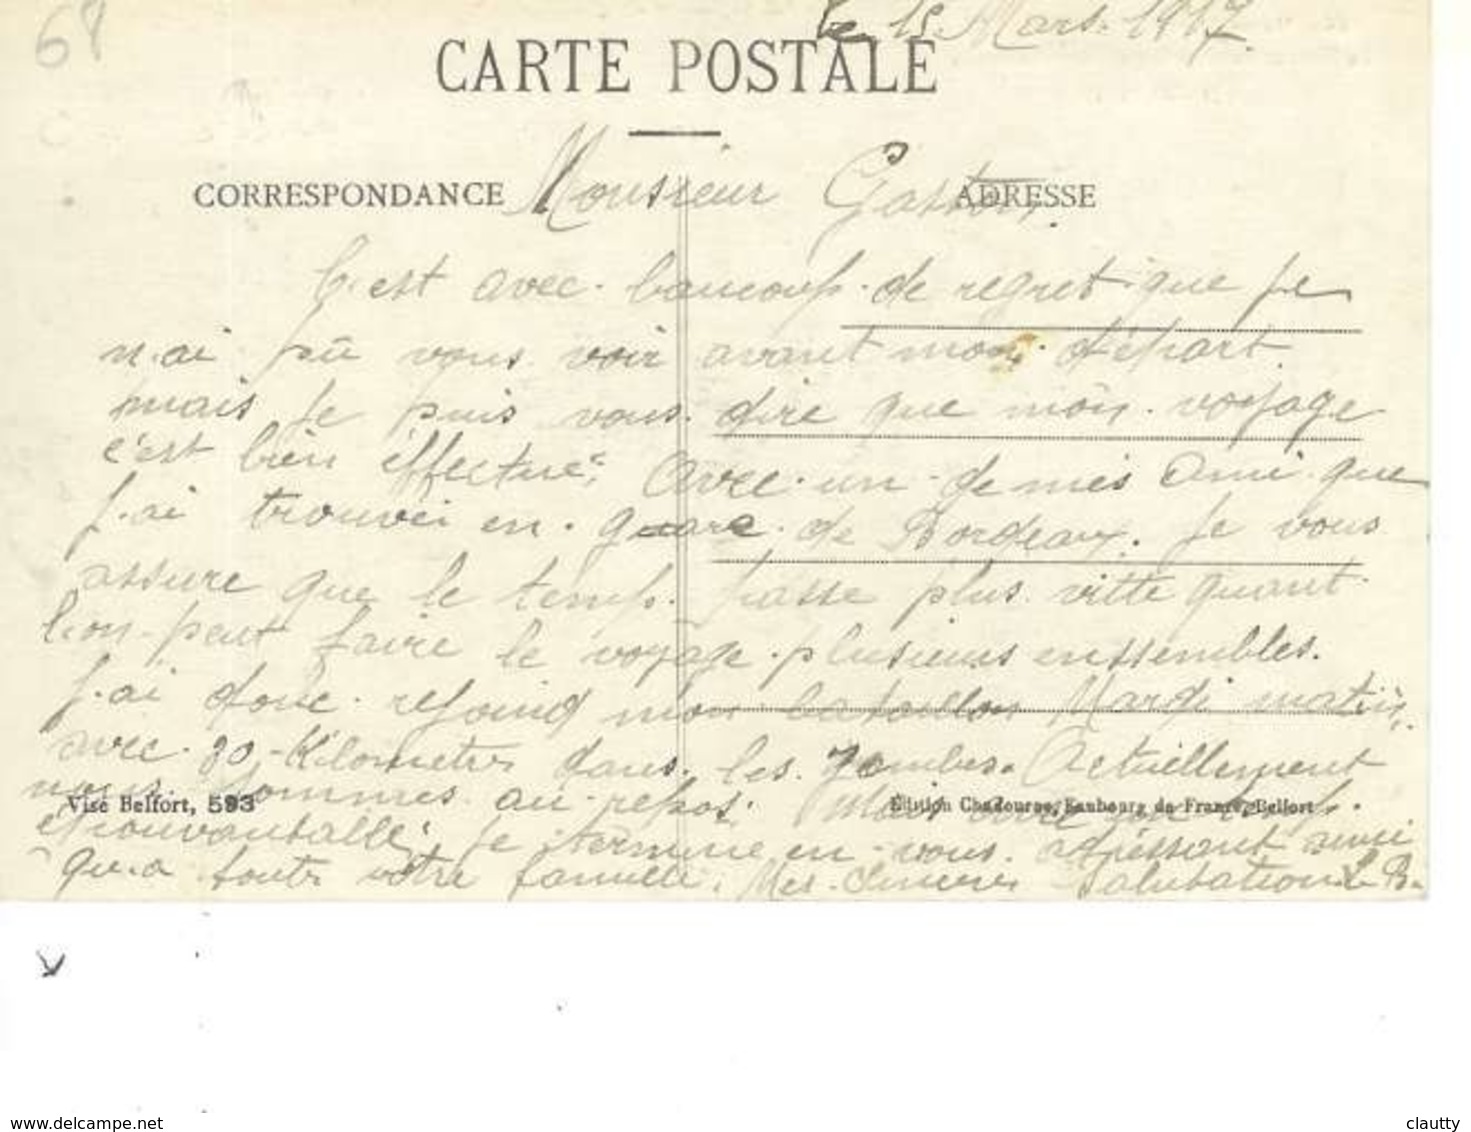 68
le 15 Mars. 1917
CARTE POSTALE
CORRESPONDANCE
ADRESSE
Monsieur Gaston.
C'est avec. baucoup. de regret que je
n.ai pû vous voir avant mon départ
mais je puis vous dire que mon voyage
c'est bien effectué. avec un de mes Ami que
j.ai trouvé en guare de Bordeaux. Je vous
assure que le temp. passe plus vitte quant
l'on peut faire le voyage plusieurs enssembles.
j.ai donc rejoind mon bataillon Mardi matin
avec 30 Kilometres dans les jambes. Actuellement
nous sommes au repos. Mais avec un temp.
épouvantable. Je termine en vous adressant
qu.a toute votre famille. Mes sincères Salutations L B.
Visé Belfort, 593
Edition Chadourne, Faubourg de France, Belfort
delcampe.net
clautty